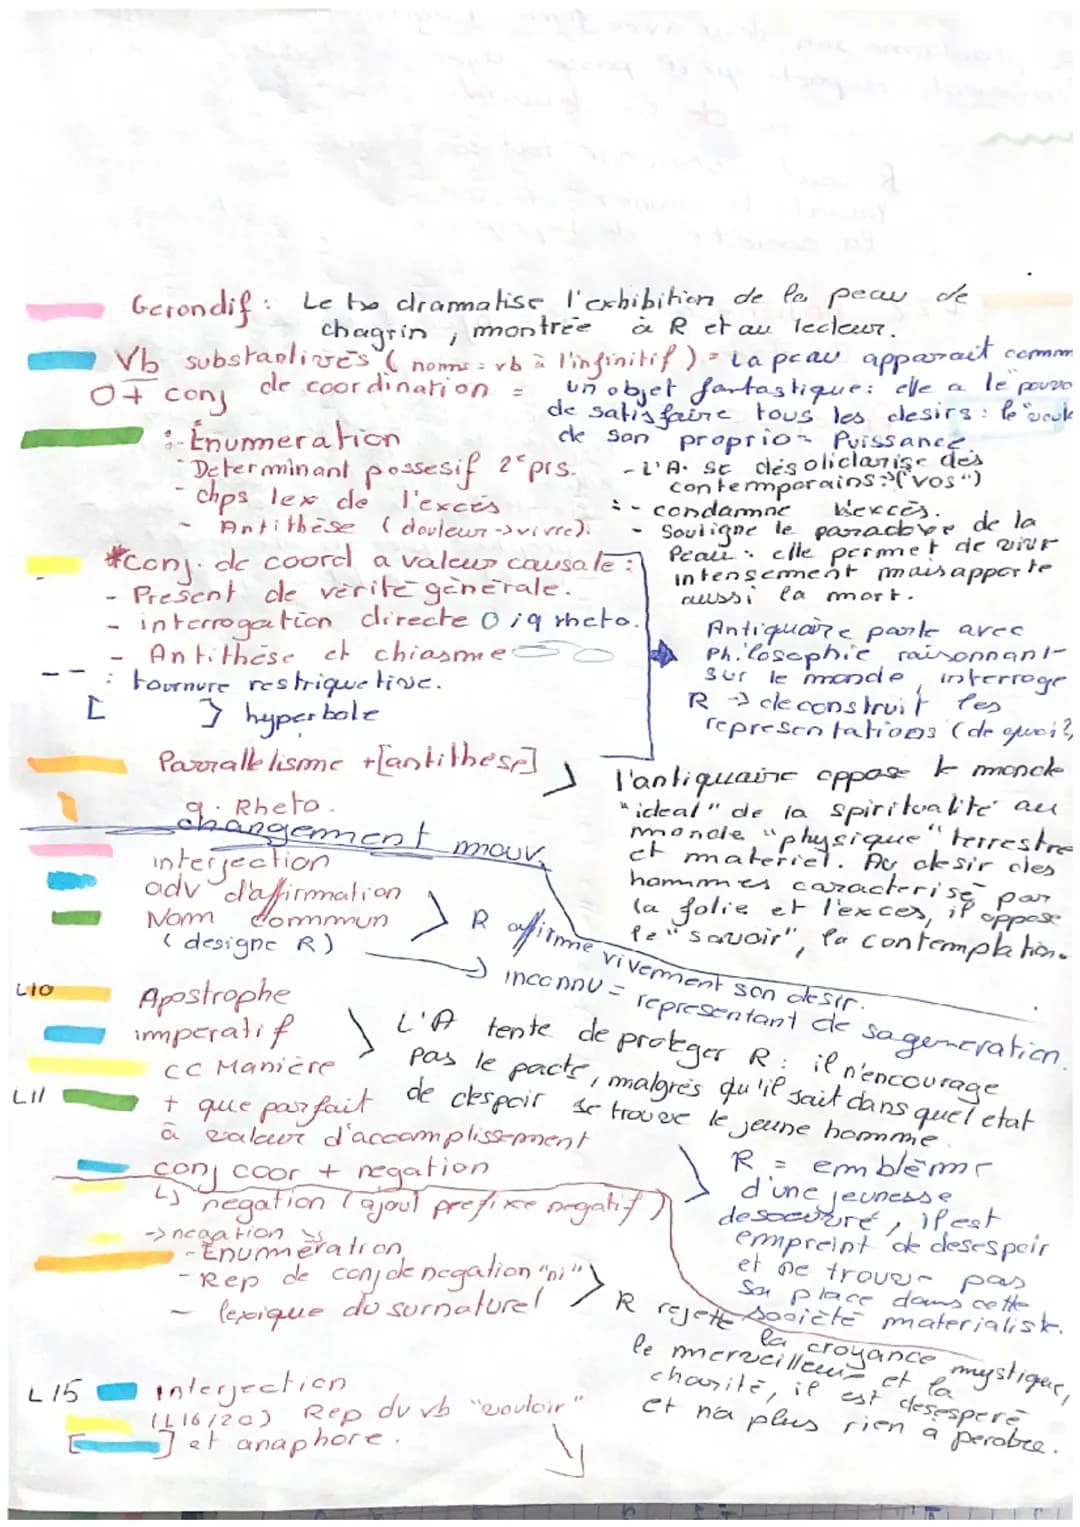 Gerondif : Le txo dramatise l'exhibition de la peau de
chagrin, montrée à R et au lecteur.
Vb substantivés (noms = vb à l'infinitif) = La peau apparait comm
O + conj de coordination = un objet fantastique: elle a le pouvo
de satisfaire tous les desirs : le
de son proprio = Puissance
:- Énumeration
- Determinant possesif 2e prs.
- chps lex de l'excés
- Antithèse (douleur -> vivre).
- L'A. se désoliclarise des
contemporains : ("vos")
:- condamne l'excès.
- Souligne le paradoxe de la
Peau : elle permet de vivr
intensement mais apporte
aussi la mort.
*Conj. de coord a valeur causale :
- Présent de vérité générale.
- interrogation directe O / q rheto.
- Antithèse et chiasme
-- : tournure restriquetive.
[ } hyperbole
Antiquaire parle avec
Philosophie raisonnant
sur le monde, interroge
R -> deconstruit les
representations (de quoi?
Parrallelisme + [antithèse]
q. Rheto.
l'antiquaire oppose le monde
"ideal" de la spiritualité au
monde "physique" terrestre
et materiel. Au desir des
hommes caracterisé par
la folie et l'exces, il oppose
le "savoir", la contemplation.
changement mouv.
interjection
adv d'affirmation
Nom commun
(designe R)
R affirme vivement son desir.
inconnu = representant de sa generation.
L10 Apostrophe
imperatif
cc Manière
L'A tente de proteger R : il n'encourage
pas le pacte, malgrés qu'il sait dans quel etat
de despoir se trouve le jeune homme.
L11 + que parfait
à valeur d'accomplissement
conj coor + negation
↳ negation (ajout prefixe negatif)
R = emblème
d'une jeunesse
desoeuvré, il est
empreint de desespoir
et ne trouve pas
sa place dans cette
société materialist.
-> negation
- Enumération
- Rep de conj de negation "ni"
- lexique du surnaturel
R rejette la croyance mystique,
le merveilleux et la
charité, il est desesperé
et n'a plus rien a perdre.
L15 interjection
(L16/20) Rep du vb "vouloir"
[ ] et anaphore.